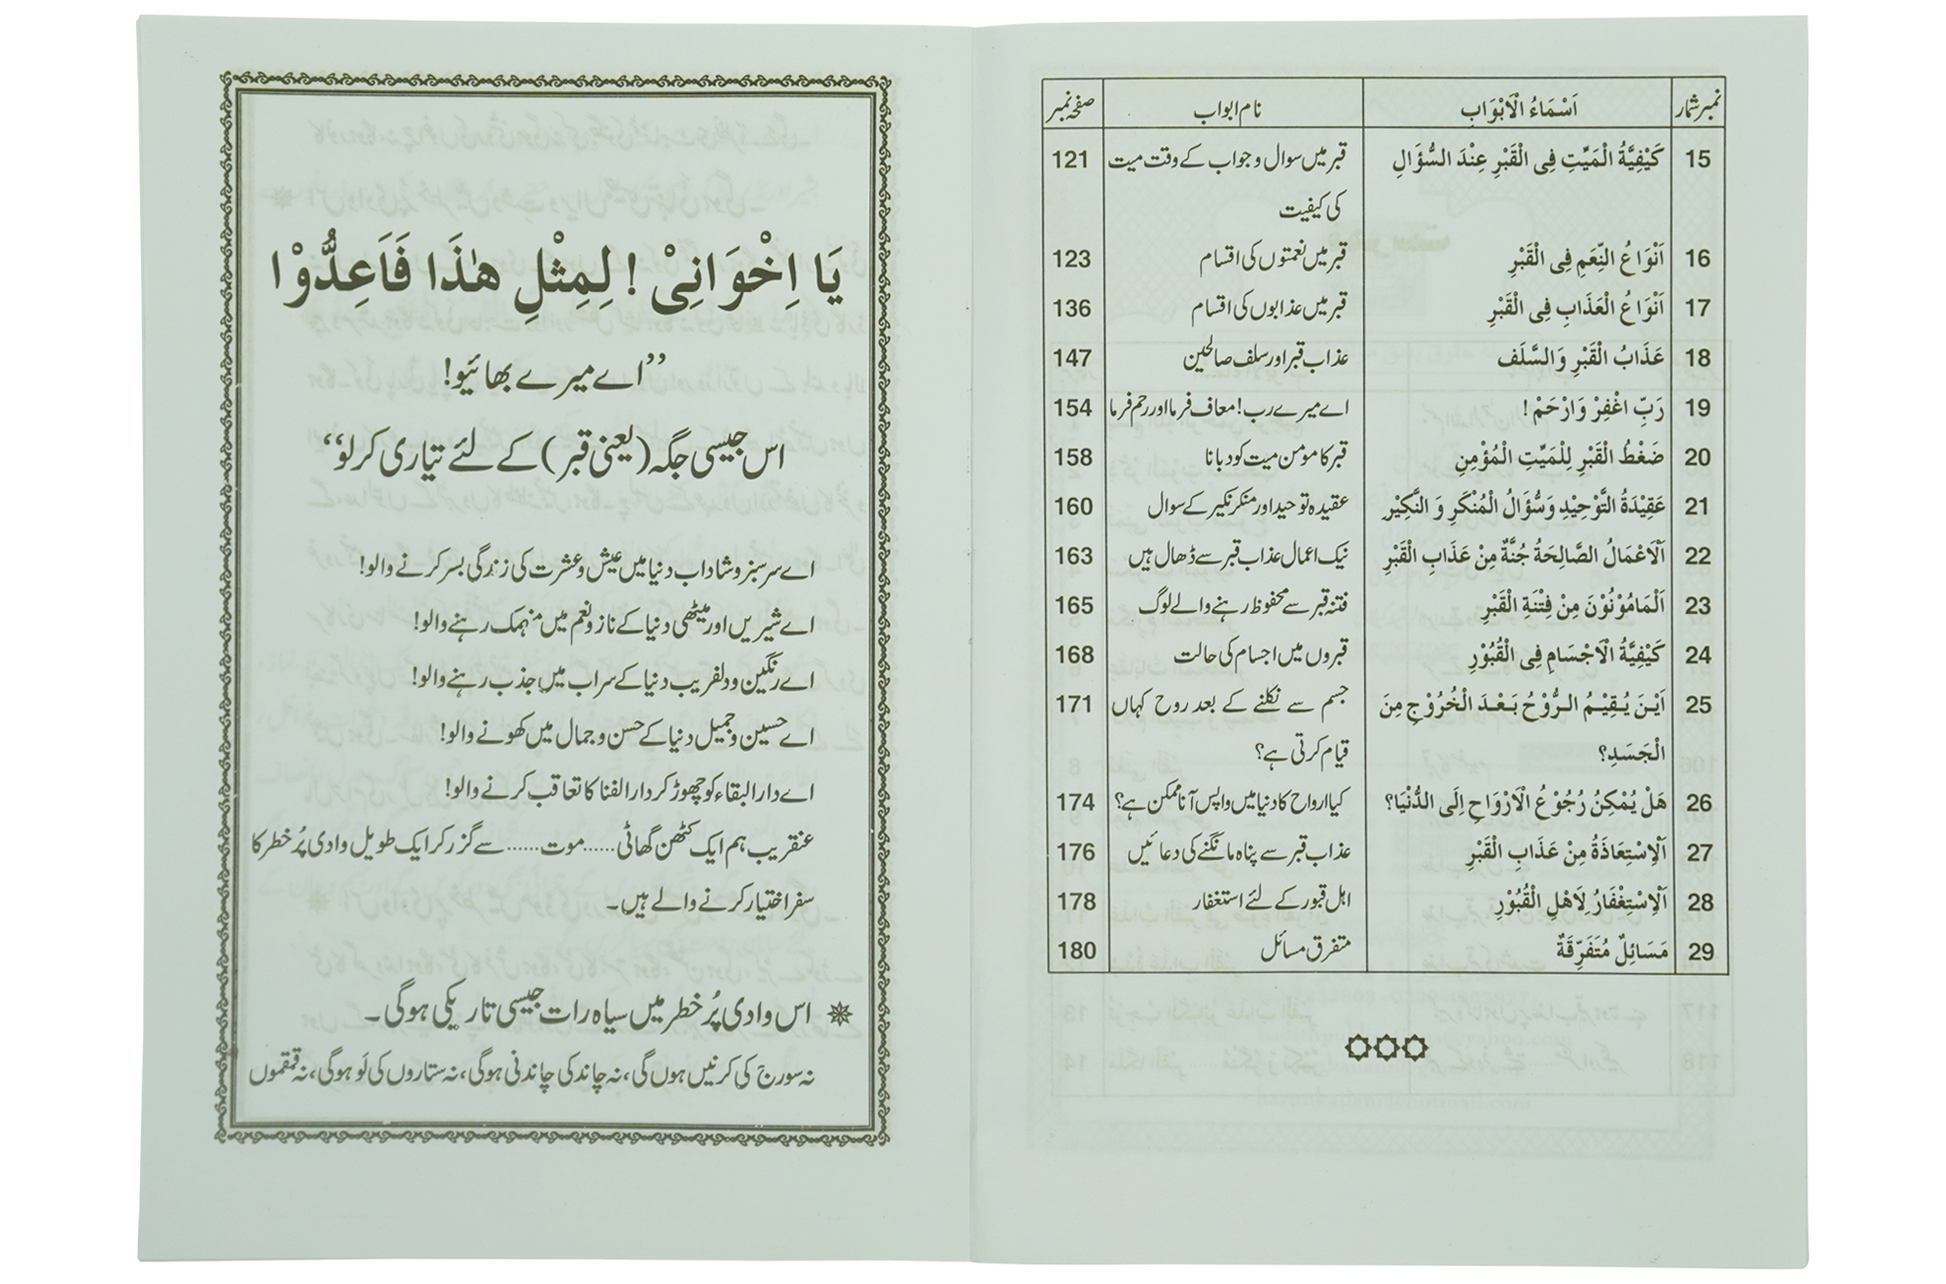 نمبر شمار اَسْمَاءُ الْاَبْوَابِ نام ابواب صفحہ نمبر
15 كَيْفِيَّةُ الْمَيِّتِ فِى الْقَبْرِ عِنْدَ السُّؤَالِ قبر میں سوال و جواب کے وقت میت 121
کی کیفیت
16 اَنْوَاعُ النِّعَمِ فِى الْقَبْرِ قبر میں نعمتوں کی اقسام 123
17 اَنْوَاعُ الْعَذَابِ فِى الْقَبْرِ قبر میں عذابوں کی اقسام 136
18 عَذَابُ الْقَبْرِ وَالسَّلَف عذاب قبر اور سلف صالحین 147
19 رَبِّ اغْفِرْ وَارْحَمْ! اے میرے رب! معاف فرما اور رحم فرما 154
20 ضَغْطُ الْقَبْرِ لِلْمَيِّتِ الْمُؤْمِنِ قبر کا مومن میت کو دبانا 158
21 عَقِيْدَةُ التَّوْحِيْدِ وَسُؤَالُ الْمُنْكَرِ وَ النَّكِيْرِ عقیدہ توحید اور منکر نکیر کے سوال 160
22 اَلْاَعْمَالُ الصَّالِحَةُ جُنَّةٌ مِنْ عَذَابِ الْقَبْرِ نیک اعمال عذاب قبر سے ڈھال ہیں 163
23 اَلْمَامُوْنُوْنَ مِنْ فِتْنَةِ الْقَبْرِ فتنہ قبر سے محفوظ رہنے والے لوگ 165
24 كَيْفِيَّةُ الْاَجْسَامِ فِى الْقُبُوْرِ قبروں میں اجسام کی حالت 168
25 اَيْنَ يُقِيْمُ الرُّوْحُ بَعْدَ الْخُرُوْجِ مِنَ جسم سے نکلنے کے بعد روح کہاں 171
الْجَسَدِ؟ قیام کرتی ہے؟
26 هَلْ يُمْكِنُ رُجُوْعُ الْاَرْوَاحِ اِلَى الدُّنْيَا؟ کیا ارواح کا دنیا میں واپس آنا ممکن ہے؟ 174
27 اَلْاِسْتِعَاذَةُ مِنْ عَذَابِ الْقَبْرِ عذاب قبر سے پناہ مانگنے کی دعائیں 176
28 اَلْاِسْتِغْفَارُ لِاَهْلِ الْقُبُوْرِ اہل قبور کے لئے استغفار 178
29 مَسَائِلٌ مُتَفَرِّقَةٌ متفرق مسائل 180
يَا اِخْوَانِىْ! لِمِثْلِ هٰذَا فَاَعِدُّوْا
”اے میرے بھائیو!
اس جیسی جگہ (یعنی قبر) کے لئے تیاری کرلو“
اے سرسبز و شاداب دنیا میں عیش و عشرت کی زندگی بسر کرنے والو!
اے شیریں اور میٹھی دنیا کے ناز و نعم میں منہمک رہنے والو!
اے رنگین و دلفریب دنیا کے سراب میں جذب رہنے والو!
اے حسین و جمیل دنیا کے حسن و جمال میں کھونے والو!
اے دار البقاء کو چھوڑ کر دار الفنا کا تعاقب کرنے والو!
عنقریب ہم ایک کٹھن گھاٹی......موت......سے گزر کر ایک طویل وادی پُر خطر کا
سفر اختیار کرنے والے ہیں۔
اس وادی پُر خطر میں سیاہ رات جیسی تاریکی ہوگی۔
نہ سورج کی کرنیں ہوں گی، نہ چاند کی چاندنی ہوگی، نہ ستاروں کی لَو ہوگی، نہ قمقموں